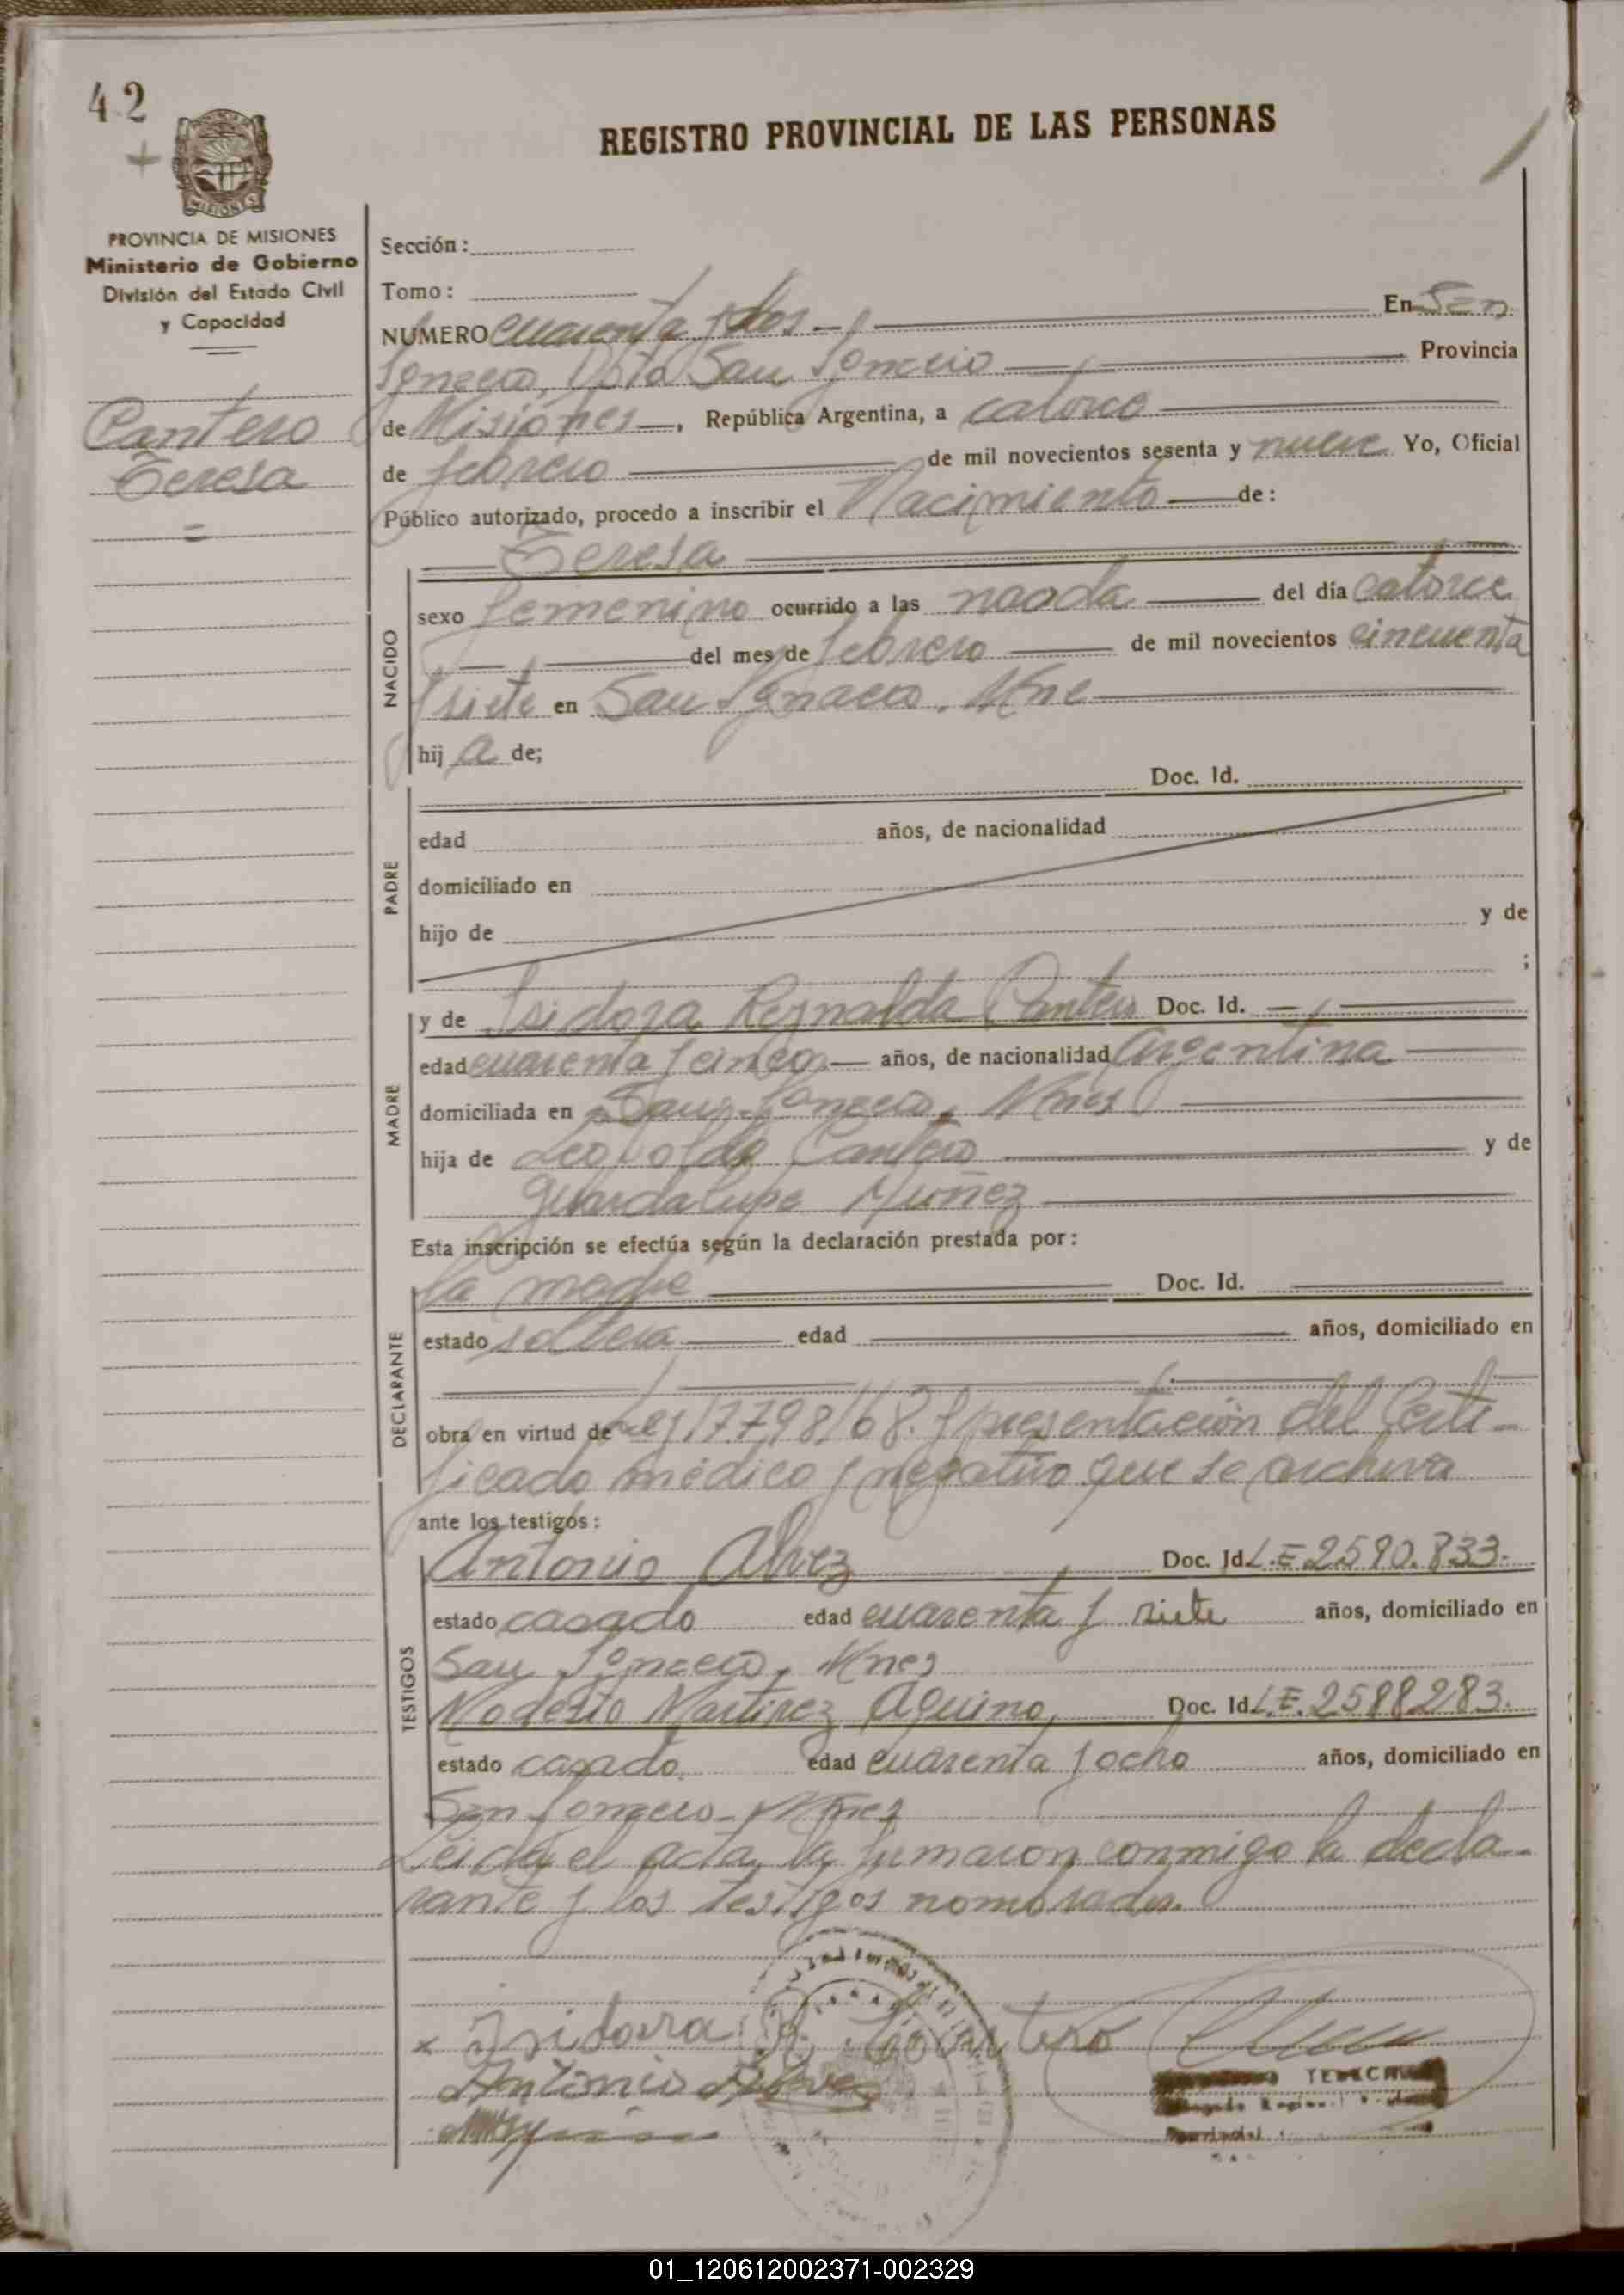 42
REGISTRO PROVINCIAL DE LAS PERSONAS
MISIONES
PROVINCIA DE MISIONES
Ministerio de Gobierno
División del Estado Civil
y Capacidad
Cantero
Teresa
Sección:
Tomo:
NUMERO cuarenta y dos En San
Ignacio, Dpto San Ignacio Provincia
de Misiones, República Argentina, a catorce
de febrero de mil novecientos sesenta y nueve Yo, Oficial
Público autorizado, procedo a inscribir el Nacimiento de:
Teresa
NACIDO
sexo femenino ocurrido a las del día catorce
del mes de febrero de mil novecientos cincuenta
y siete en San Ignacio, Mne
hij a de;
PADRE
Doc. Id.
edad años, de nacionalidad
domiciliado en
hijo de y de
;
MADRE
y de Isidora Reynalda Cantero Doc. Id.
edad cuarenta y cinco años, de nacionalidad Argentina
domiciliada en San Ignacio, Mnes
hija de Leopoldo Cantero y de
Guardalupe Muñez
Esta inscripción se efectúa según la declaración prestada por:
DECLARANTE
la madre Doc. Id.
estado soltera edad años, domiciliado en
obra en virtud de ley 17.798/68. y presentación del Certi-
ficado médico y negativo que se archiva
ante los testigos:
TESTIGOS
Antonio Alvez Doc. Id. L.E 2590.833.
estado casado edad cuarenta y siete años, domiciliado en
San Ignacio, Mnes
Modesto Martinez Aquino, Doc. Id. L.E. 2588283.
estado casado. edad cuarenta y ocho años, domiciliado en
San Ignacio - Mnes
Leida el acta, la firmaron conmigo la decla-
rante y los testigos nombrados.
x Isidora R. Cantero
Antonio Alve
01_120612002371-002329